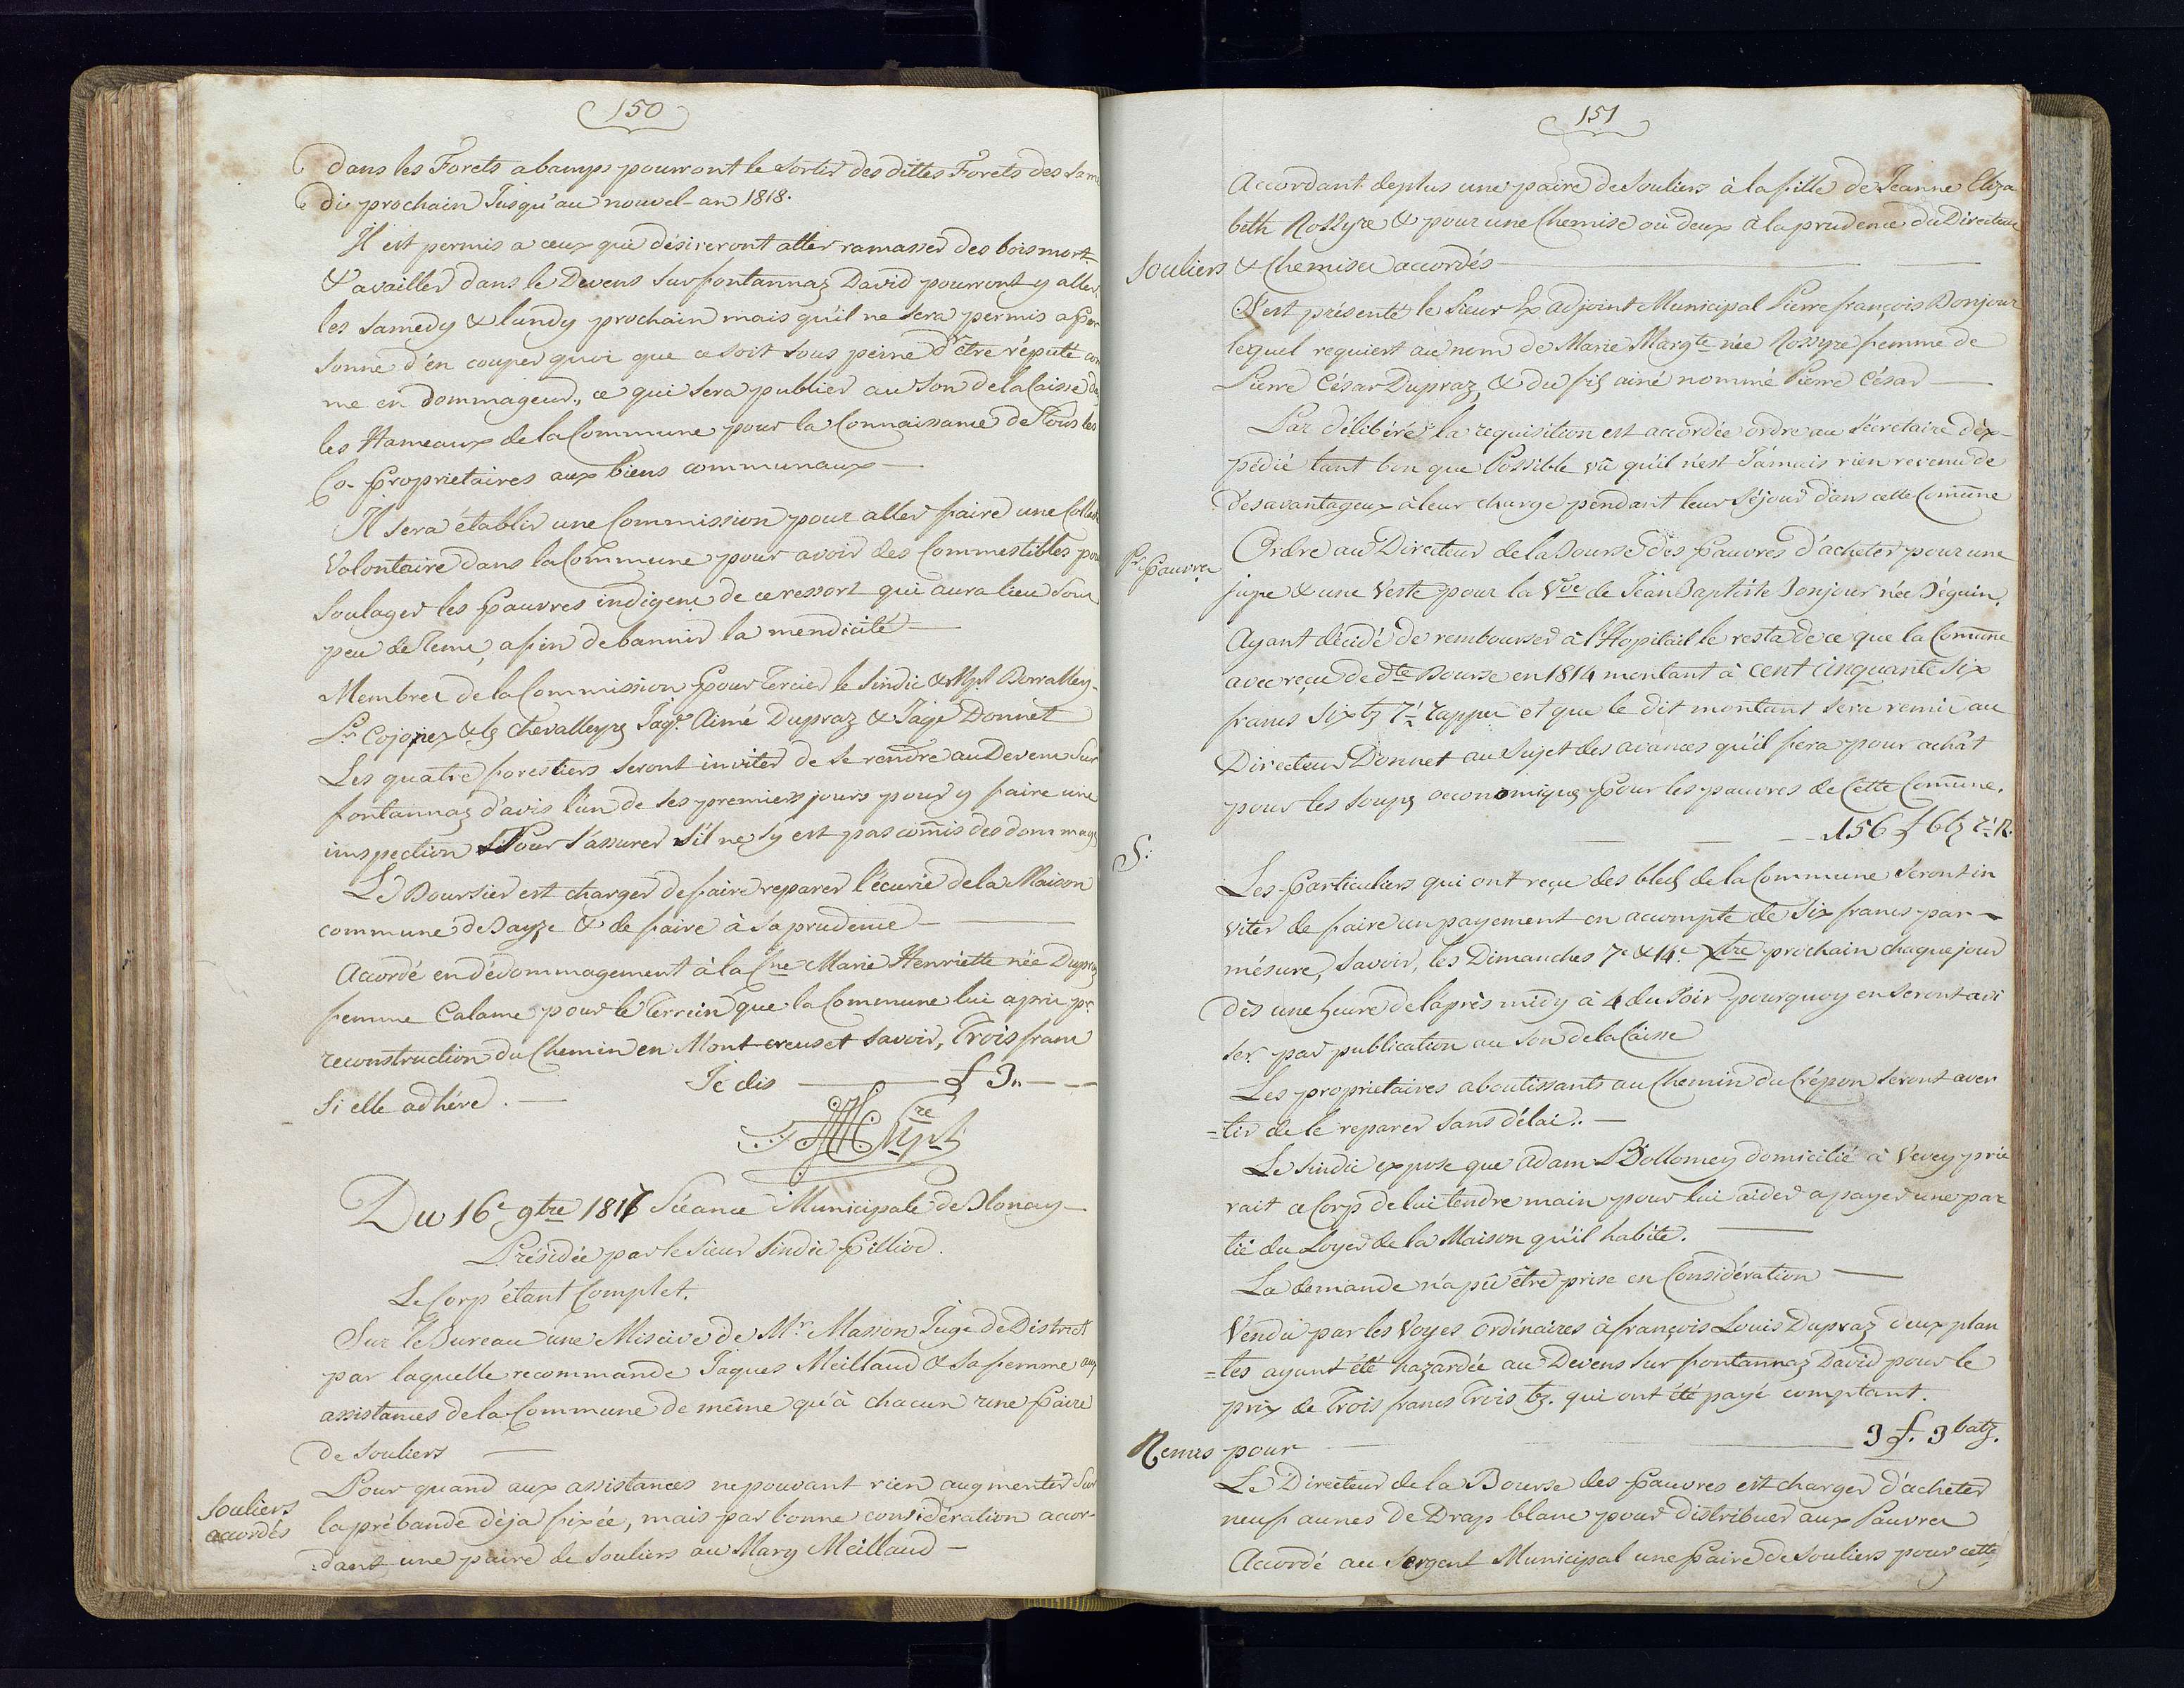 150
dans les Forets abamps pourront le sortir des dittes Forets des Same
di prochain Jusqu'au nouvel-an 1818.
Il est permis a ceux qui désireront aller ramasser des bois mort
& availler dans le Devens sur fontannaz David pourront y aller
les Samedy & lundy prochain mais qu'il ne sera permis a per
sonne d'én couper quoi que ce soit sous peine d'être réputé com
me en dommageur, ce qui sera publier au son de la Caisse de
les Hameaux de la Commune pour la Connaissance de Tous les
Co-Proprietaires aux biens communaux —
Il sera établir une Commission pour aller faire une Collecte
Volontaire dans la Commune pour avoir des Commestibles pour
soulager les Pauvres indigens de ce ressort qui aura lieu sous
peu de Tems, afin de bannir la mendicité —
Membres de la Commission Pour Tercier le Sindic & Borralley
Chevalleyre Jaqs. Aimé Dupraz & Jage Donnet
Les quatre forestiers seront inviter de se rendre au Devens sur
fontannaz d'avis l'un de ses premiers jours pour y faire une
inspection Pour s'assurer s'il ne s'y est pas com̄is des dommages
Le Boursier est charger de faire reparer l'écurie de la Maison
commune de Bayze & de faire à sa prudence —
Accordé en dédommagement à la Cne Marie Henriette née Dupraz
femme Calame pour le Terrein que la Commune lui apris pr.
reconstruction du Chemin en Mont-creuset savoir, Trois francs
Je dis — £ 3„ —
si elle adhére. —
Du 16e 9bre 1817 Séance Municipale de Blonay —
Présidée par le Sieur Sindic Pilliod.
Le Corp étant Complet.
Sur le Bureau une Missive de Mr. Masson Juge de District
par laquelle recommande Jaques Meillaud & sa femme aux
assistances de la Commune de même qu'à chacun une Paire
de souliers —
Souliers
accordés
Pour quand aux assistances ne pouvant rien augmenter sur
la prébande déja fixée, mais par bonne considération accor-
=dant une paire de souliers au Mary Meillaud —
151
Accordant deplus une paire de souliers à la fille de Jeanne Eliza
beth Rossyre & pour une Chemise ou deux à la prudence du Directeur
Souliers & Chemises accordés —
S'est présenté le Sieur Ex adjoint Municipal Pierre françois Bonjour
lequel requiert au nom de Marie Margte née Rossyre femme de
Pierre César Dupraz, & du fils ainé nommé Pierre César —
Par délibéré la requisition est accordée ordre au Sécretaire d'éx-
pédié tant bon que Possible vû qu'il n'est Jámais rien revenu de
désavantageux à leur charge pendant leur Séjour dans cette Com̄une
Pr. Pauvres
Ordre au Directeur de la Bourse des Pauvres d'acheter pour une
jupe & une Veste pour la Vve de Jean Baptiste Bonjour née Béguin.
Ayant décidé de rembourser à l'Hopitail le resta de ce que la Com̄une
avec reçu de dte Bourse en 1814 montant à Cent Cinquante six
francs six bz 7½ rappes et que le dit montant sera remis au
Directeur Donnet au sujet des avances qu'il fera pour achat
pour les soupes oeconomiques Pour les pauvres de Cette Com̄une.
— 156 £ 6 bz 7½ R.
S:
Les Particuliers qui ont reçu des bleds de la Commune seront in
viter de faire un payement en accompte de six francs par —
mésure, Savoir, les Dimanches 7e & 14e Xbre prochain chaque jour
dès une heure de l'après midy à 4 du Soir pourquoy en seront avi
ser par publication au son de la Caisse
Les proprietaires aboutissants au Chemin du Crépon seront aver
=tir de le reparer sans délai.. —
Le Sindic expose que Adam Bollomey domicilié à Vevey prie
rait ce Corp de lui tendre main pour lui aider apayer une par
tie du Loyer de la Maison qu'il habite. —
La demande n'a pû être prise en Considération —
Vendu par les Voyes Ordinaires à françois Louis Dupraz deux plan
=tes ayant été hazardée au Devens sur fontannaz David pour le
prix de Trois francs Trois bz. qui ont été payé comptant.
Remis pour — 3 f. 3 batz.
Le Directeur de la Bourse des Pauvres est charger d'acheter
neuf aunes de Drap blanc pour distribuer aux Pauvres
Accordé au Sergent Municipal une Paire de souliers pour cette